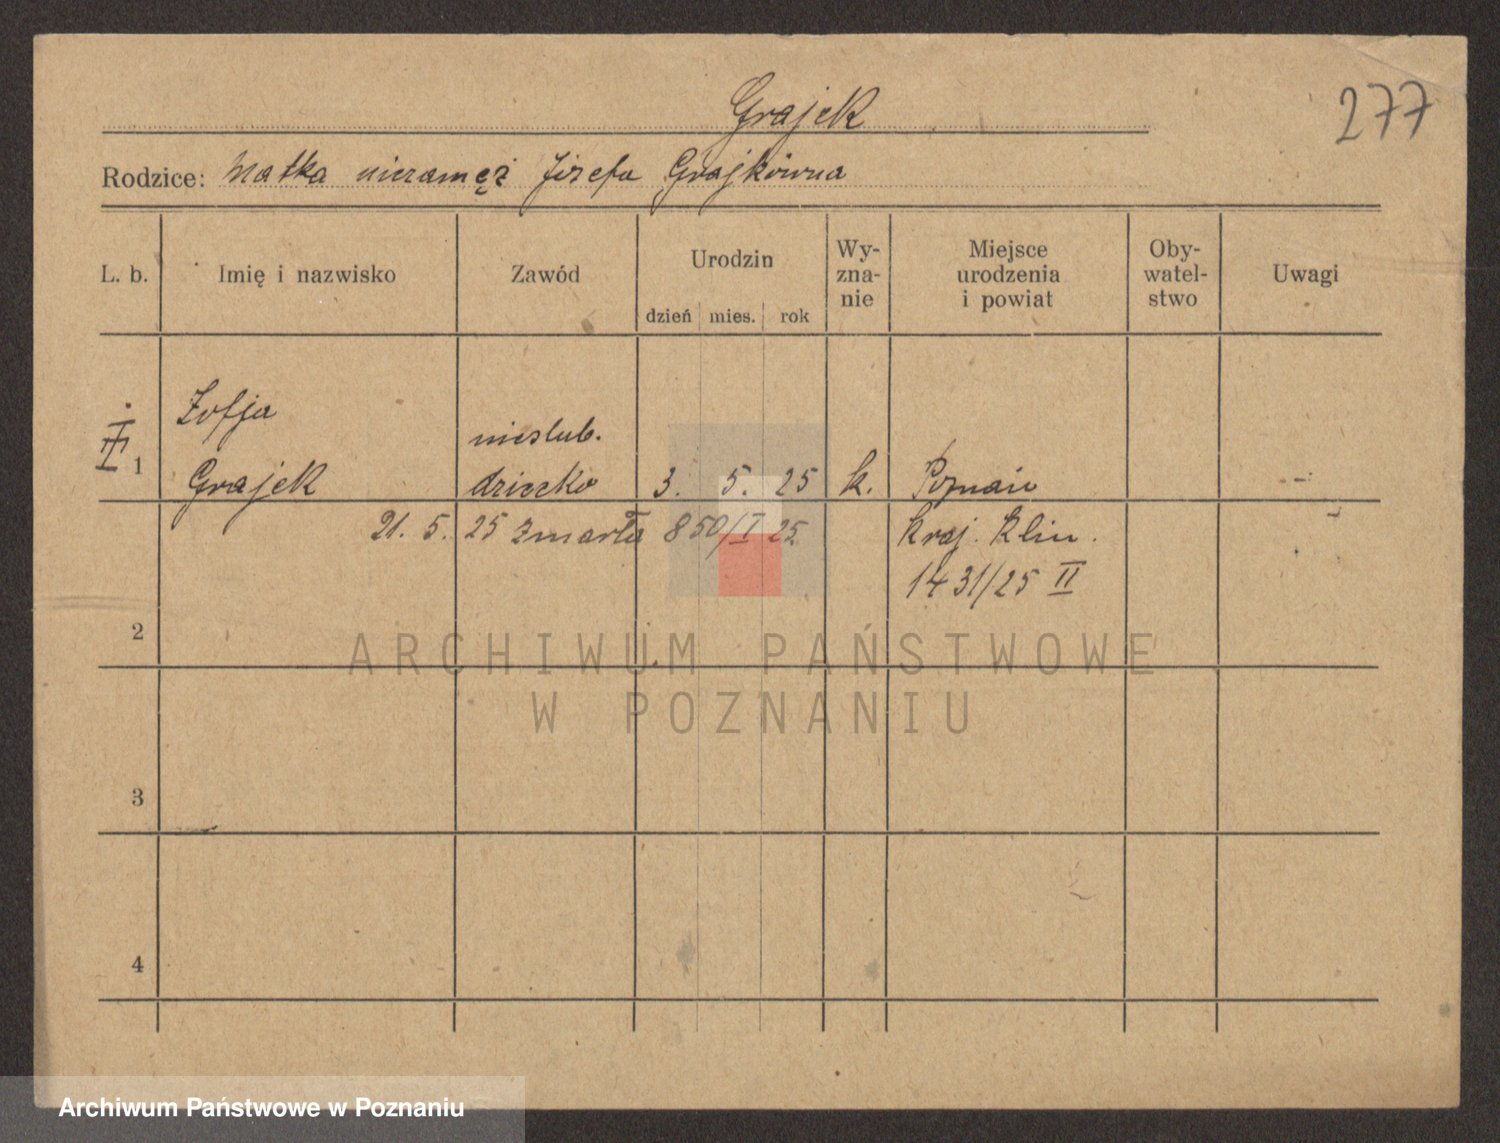 Grajek
277
Rodzice: Matka niezamęż Józefa Grajkówna
L. b. Imię i nazwisko Zawód Urodzin dzień mies. rok Wy-zna-nie Miejsce urodzenia i powiat Oby-watel-stwo Uwagi
Zofja
nieślub.
1 Grajek dziecko 3. 5. 25 k. Poznań
21. 5. 25 zmarła 850/I 25 Kraj. Klin.
1431/25 II
2
3
4
ARCHIWUM PAŃSTWOWE
W POZNANIU
Archiwum Państwowe w Poznaniu